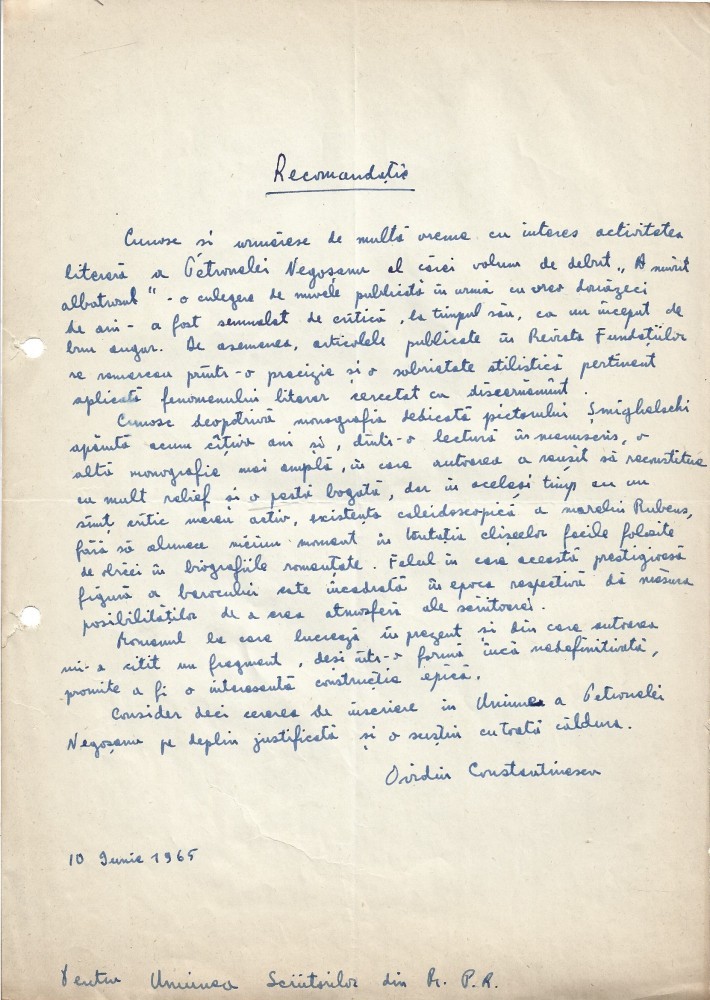 Recomandație
Cunosc și urmăresc de multă vreme cu interes activitatea
literară a Petronelei Negoșanu al cărei volum de debut „A murit
albatrosul" - o culegere de nuvele publicată în urmă cu vreo douăzeci
de ani - a fost semnalat de critică, la timpul său, ca un început de
bun augur. De asemenea, articolele publicate în Revista Fundațiilor
se remarcau printr-o precizie și o sobrietate stilistică pertinent
aplicată fenomenului literar cercetat cu discernământ.
Cunosc deopotrivă monografia dedicată pictorului Șmighelschi
apărută acum cîțiva ani și, dintr-o lectură în manuscris, o
altă monografie mai amplă, în care autoarea a reușit să reconstituie
cu mult relief și o pastă bogată, dar în același timp cu un
simț critic mereu activ, existența caleidoscopică a marelui Rubens,
fără să alunece niciun moment în tentația clișeelor facile folosite
de obicei în biografiile romanțate. Felul în care această prestigioasă
figură a barocului este încadrată în epoca respectivă dă măsura
posibilităților de a crea atmosferă ale scriitoarei.
Romanul la care lucrează în prezent și din care autoarea
mi-a citit un fragment, deși într-o formă încă nedefinitivată,
promite a fi o interesantă construcție epică.
Consider deci cererea de înscriere în Uniunea a Petronelei
Negoșanu pe deplin justificată și o susțin cu toată căldura.
Ovidiu Constantinescu
10 Iunie 1965
Pentru Uniunea Scriitorilor din R. P. R.